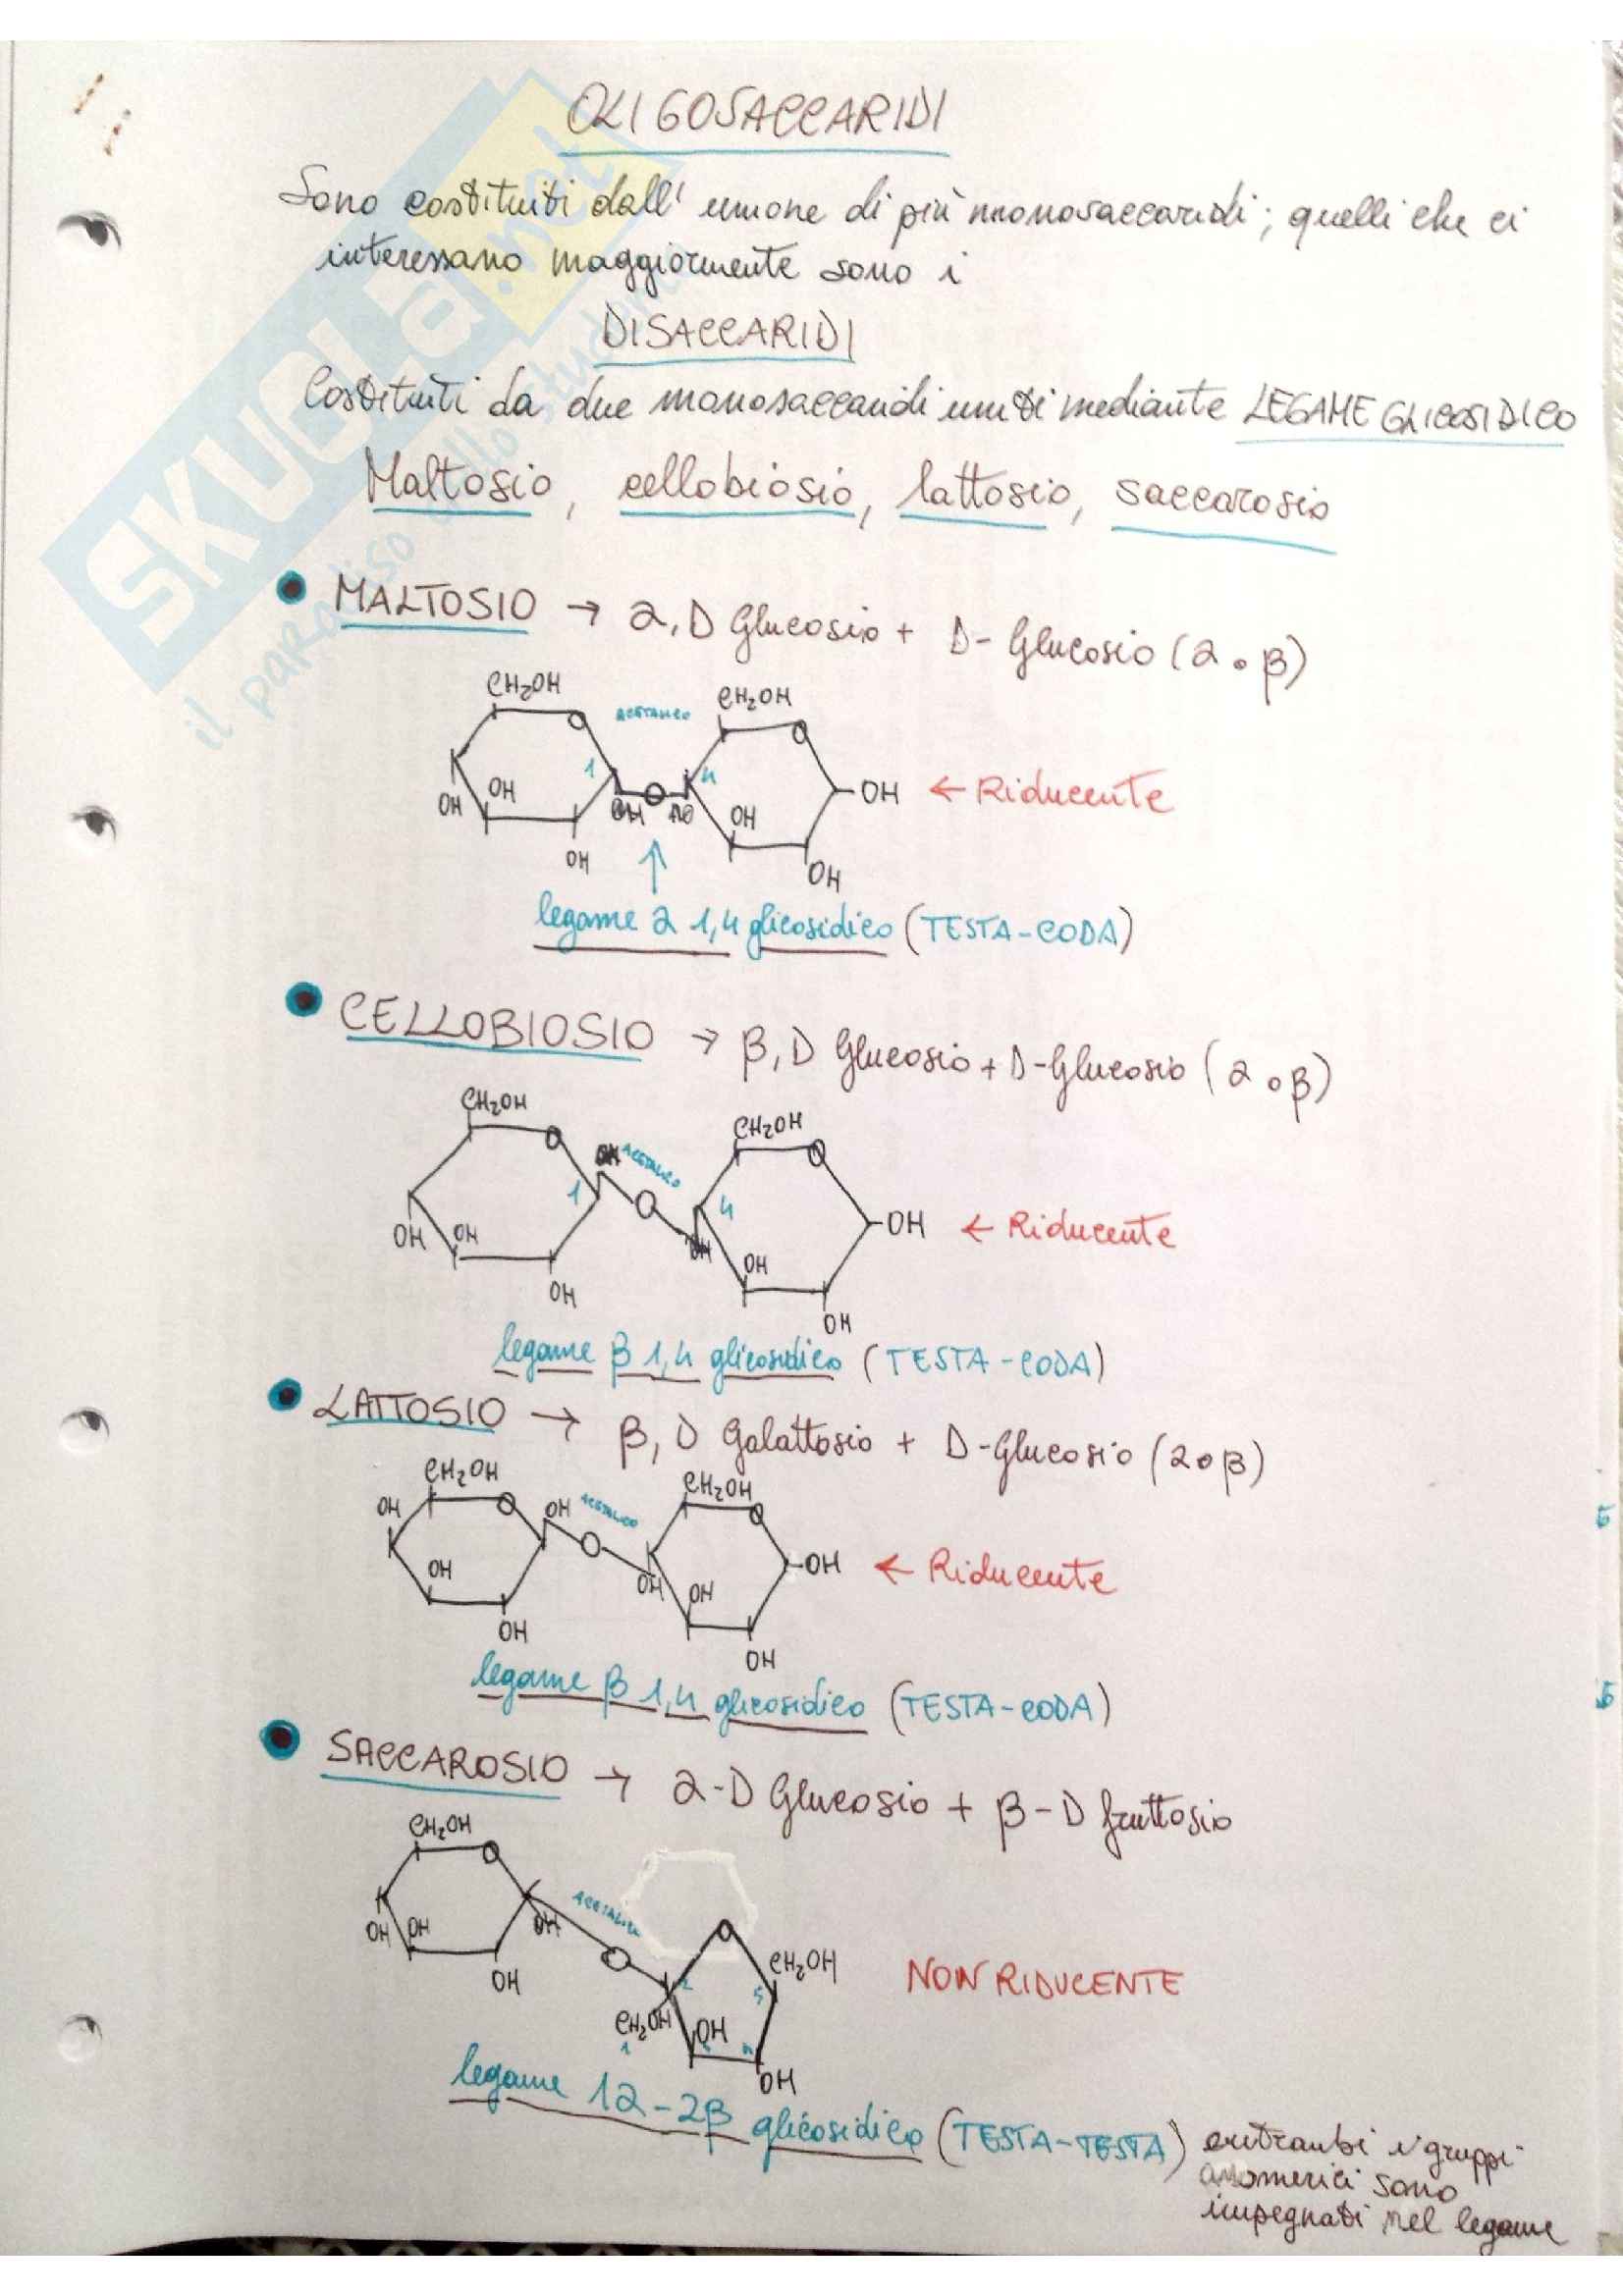 OLIGOSACCARIDI
Sono costituiti dall' unione di più monosaccaridi; quelli che ci
interessano maggiormente sono i
DISACCARIDI
Costituiti da due monosaccaridi uniti mediante LEGAME GLICOSIDICO
Maltosio, cellobiosio, lattosio, saccarosio
SKUOLa.net
il paradiso dello studente
MALTOSIO → α, D Glucosio + D-Glucosio (α o β)
CH₂OH ACETALICO CH₂OH
O O
1 4
OH OH OH O HO OH OH ← Riducente
OH OH
legame α 1,4 glicosidico (TESTA-CODA)
CELLOBIOSIO → β, D Glucosio + D-Glucosio (α o β)
CH₂OH CH₂OH
O OH ACETALICO O
1 O 4
OH OH OH OH OH ← Riducente
OH OH
legame β 1,4 glicosidico (TESTA-CODA)
LATTOSIO → β, D Galattosio + D-Glucosio (α o β)
CH₂OH CH₂OH
OH O OH ACETALICO O
O OH ← Riducente
OH OH OH
OH OH
legame β 1,4 glicosidico (TESTA-CODA)
SACCAROSIO → α-D Glucosio + β-D fruttosio
CH₂OH
O
ACETALICO
OH OH OH O O
OH 2 5 CH₂OH NON RIDUCENTE
CH₂OH OH
1 4
OH
legame 1α-2β glicosidico (TESTA-TESTA) entrambi i gruppi
anomerici sono
impegnati nel legame